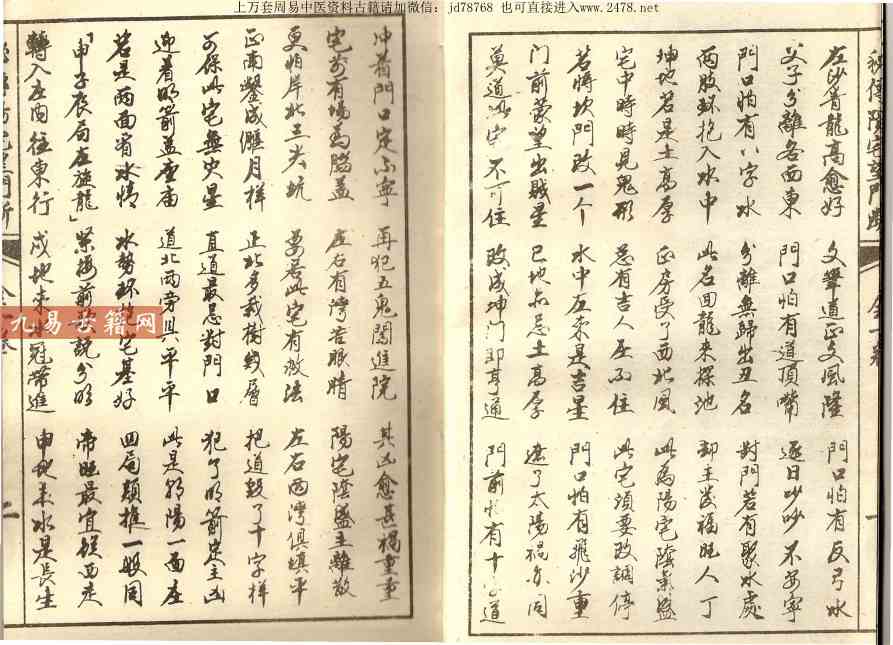 上万套周易中医资料古籍请加微信：jd78768 也可直接进入www.2478.net
左沙青龍高愈好 文筆道正文風隆 門口怕有反弓水
父子分離各西東 門口怕有道頂嘴 逐日吵吵不安寧
門口怕有八字水 分離無歸出丑名 對門若有聚水處
兩股环抱入水中 此名回龍來探池 却主发福旺人丁
坤地若是土高厚 正房受了西北風 此為陽宅陰氣盛
宅中時時見鬼形 总有吉人左不住 此宅須要改調停
若将坎門改一个 水中左來是吉星 門口怕有飛沙重
門前蒙望出賊星 巳地亦忌土高厚 遮了太陽禍亦同
莫道此宅不可住 改成坤門即亨通 門前怕有十字道
一
冲着門口定不寧 再犯五鬼闖進院 其凶愈甚禍重重
宅前有場為腦蓋 左右有灣若眼睛 陽宅陰盛主離散
更怕岸北三尖坑 要若此宅有救法 左右两灣俱填平
正南鑿成偃月樣 正北多栽樹幾層 把道毀了十字樣
方保此宅無灾星 直道最忌對門口 犯了明箭主凶
迎着明箭蓋座庙 道北两旁具平平 此是陽一面左
若是两面有水情 水勢环抱宅基好 四局類推一般同
「申子辰局左旋龍」 紧接前歌説分明 帝旺最宜從西走
轉入左向往東行 戌地来水冠帶進 申地来水是長生
二
九易古籍网